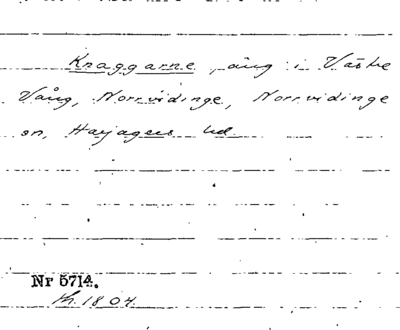 Knaggarne, äng i Västre
Vång, Norrvidinge, Norrvidinge
sn, Harjagers hd.
Nr 5714.
Kh. 1804.